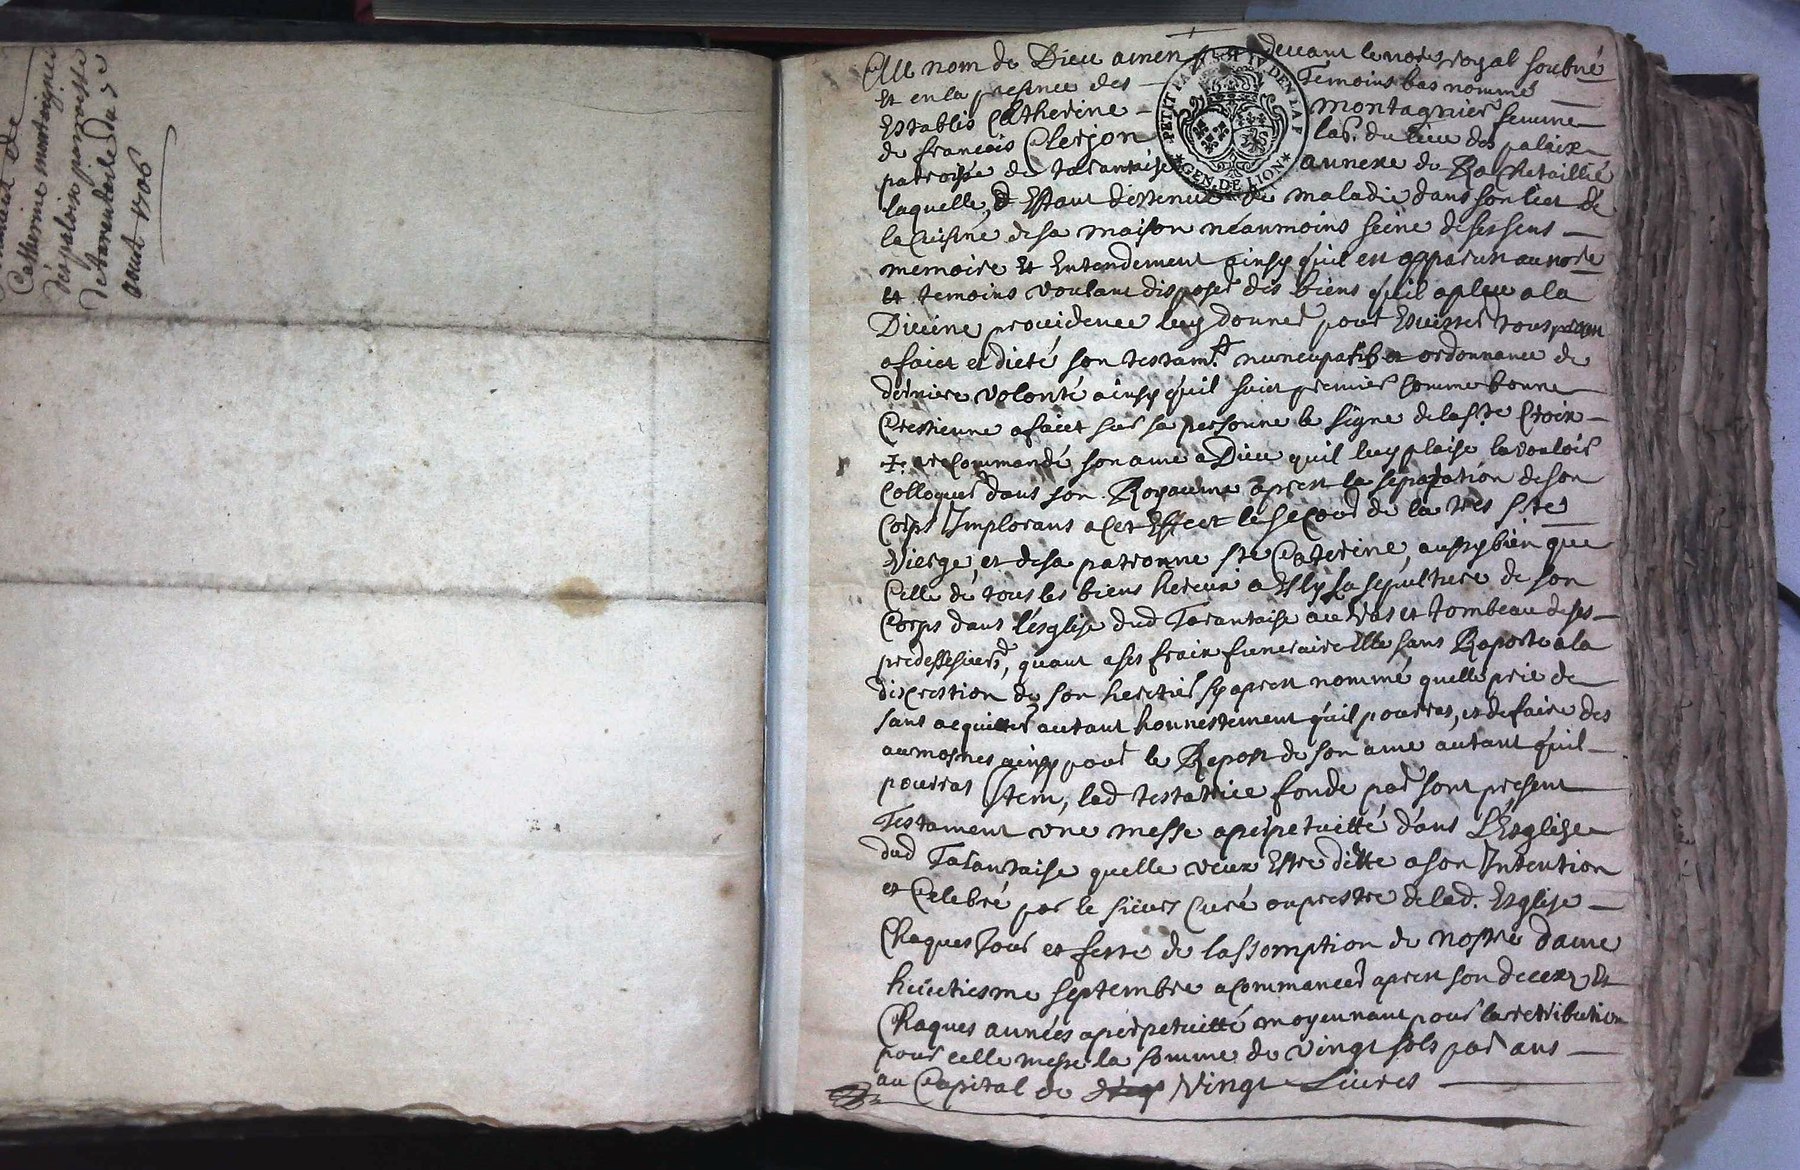 Catherine montaignier
des palais parroisse
de tarentaise du 7e
aoust 1706
Au nom de Dieu amen devant le nore royal soubné
Et en la presence des Temoins bas nommé
Establis Catherine montagnier femme
de francois Clerjon lab.r du lieu des palaix
paroisse de tarantaise annexe de Rochetaillié
laquelle Estant destenue de maladie dans son lict de
la Cuisine de sa maison néanmoins seine de ses sens
memoire Et Entendement ainsy qu'il en apparu au nore
Et temoins voulant disposer des biens qu'il a pleu a la
Divine providence luy donner pour
a faict et dicté son testam.t nuncupatif et ordonnance de
derniere volonté ainsy qu'il suict premier comme bonne
Crestienne a faict sur sa personne le signe de la s.te Croix
+. a recommandé son ame a Dieu qu'il luy plaise la vouloir
Colloquer dans son Royaume apres la séparation de son
Corps Implorans a cet Effect le secour de la tres s.te
Vierge, et de sa patronne s.te Caterine, aussy bien que
Celle de tous les biens hereux a Esly sa sepulture de son
Corps dans l'esglise dud Tarantaise au vas et tombeau de ses
predessesieurs, quant a ses fraix funeraire Elle sans Raporte a la
discrestion de son heretier sy apres nommé quelle prie de
sans acquitter autant honnestement qu'il pourras, et de faire des
aumosnes ainsy pour le Repost de son ame autant qu'il
pourras Item, lad testatrice fonde par sont present
Testament une messe a perpetuitté dans L'Esglise
dud Tarantaise quelle veux Estre ditte a son Intention
et Celebré par le sieurs Curé ou prestre de lad. Esglise
Chaques Jour et feste de lassomption de nostre dame
huictiesme septembre a commancer apres son decex, Et
Chaques années a perpetuitté moyennant pour la retribution
pour celle messe la somme de vingt sols par ans
au Capital de Vingt Livres
PETIT PAP. GEN. DE LION